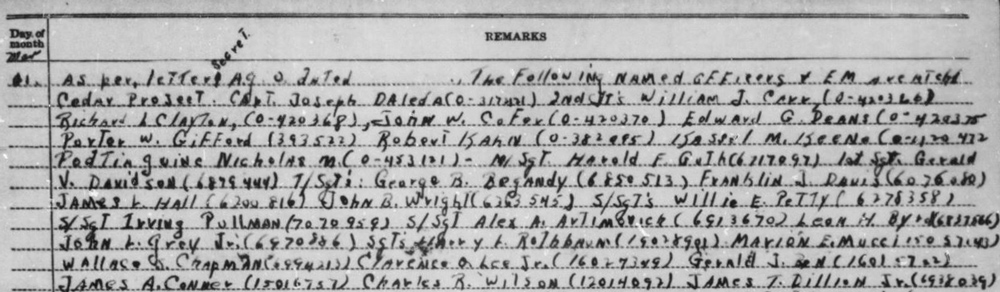 Day of month REMARKS
Mar Secret
01. As per, letter AG o dated .. The Following NAMED OFFicers & EM are atchd
Cedar Project. Capt. Joseph Daleda (0-317421) 2nd Lt's William J. Carr, (0-420366)
Richard L Clayton, (0-420368), John W. Cofer (0-420370) Edward G. Deans (0-420375
Porter W. Gifford (393522) Robert Kahn (0-382095) Kassel M. Keene (0-1120472
Podtinguine Nicholas M. (0-453121) - M/Sgt Harold F. Guth (6717097) 1st Sgt. Gerald
V. Davidson (6879444) T/Sgt's: George B. Begandy (6850513) Franklin J. Davis (6076080)
James L. Hall (6200816) John B. Wright (6263545) S/Sgt's Willie E. Petty (6278358)
S/Sgt Irving Pullman (7070959) S/Sgt Alex A. Artimovich (6913670) Leon H. Byrd
John L. Grey Jr. (6970836) Sgt's Henry L. Rothbaum Marion E. Mucci
Wallace S. Chapman Clarence O. Lee Jr. (16027349) Gerald J.
James A. Conner (15016757) Charles R. Wilson (12014092) James T. Dillion Jr. (6938039)